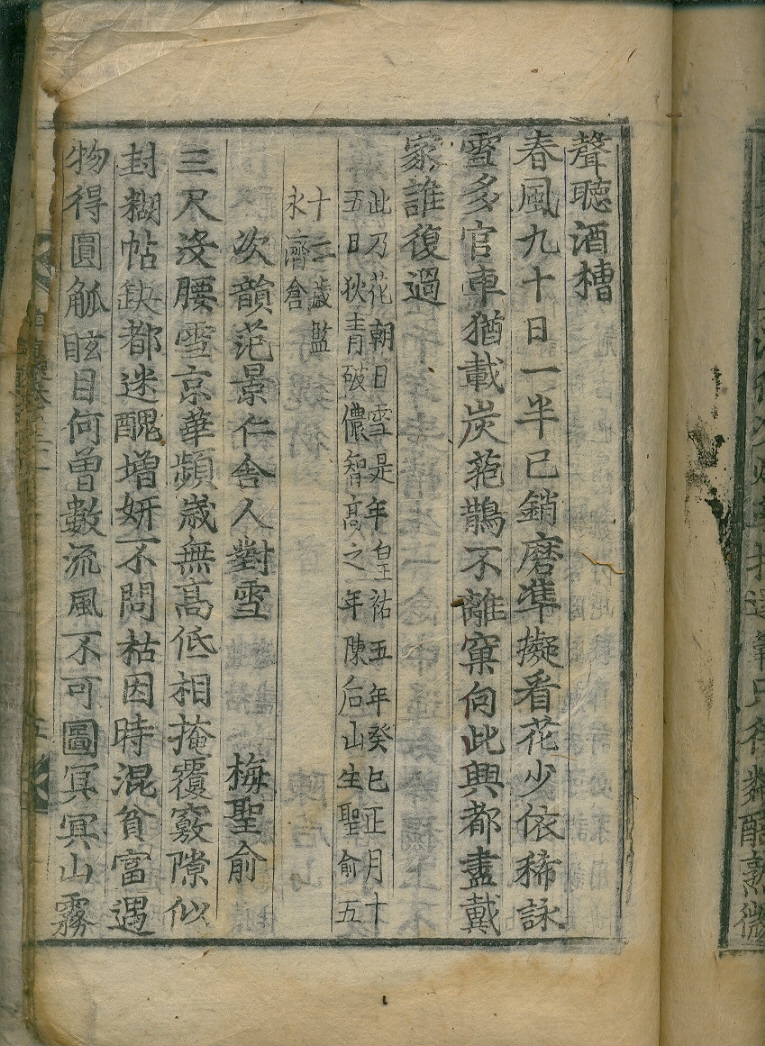 聲聽酒槽
春風九十日一半已銷磨準擬看花少依稀詠
雪多官車猶載炭蒐鵲不離窠向此興都盡戴
家誰復過
此乃花朝日雪是年皇祐五年癸巳正月十
五日狄青破儂智高之年陳后山生聖俞五
十二歲監
永濟倉
次韻范景仁舍人對雪
梅聖俞
三尺没腰雪京華頻歲無高低相掩覆竅隙似
封糊帖缺都迷醜增妍不問枯因時混貧富遇
物得圓觚眩目何曾數流風不可圖冥冥山霧